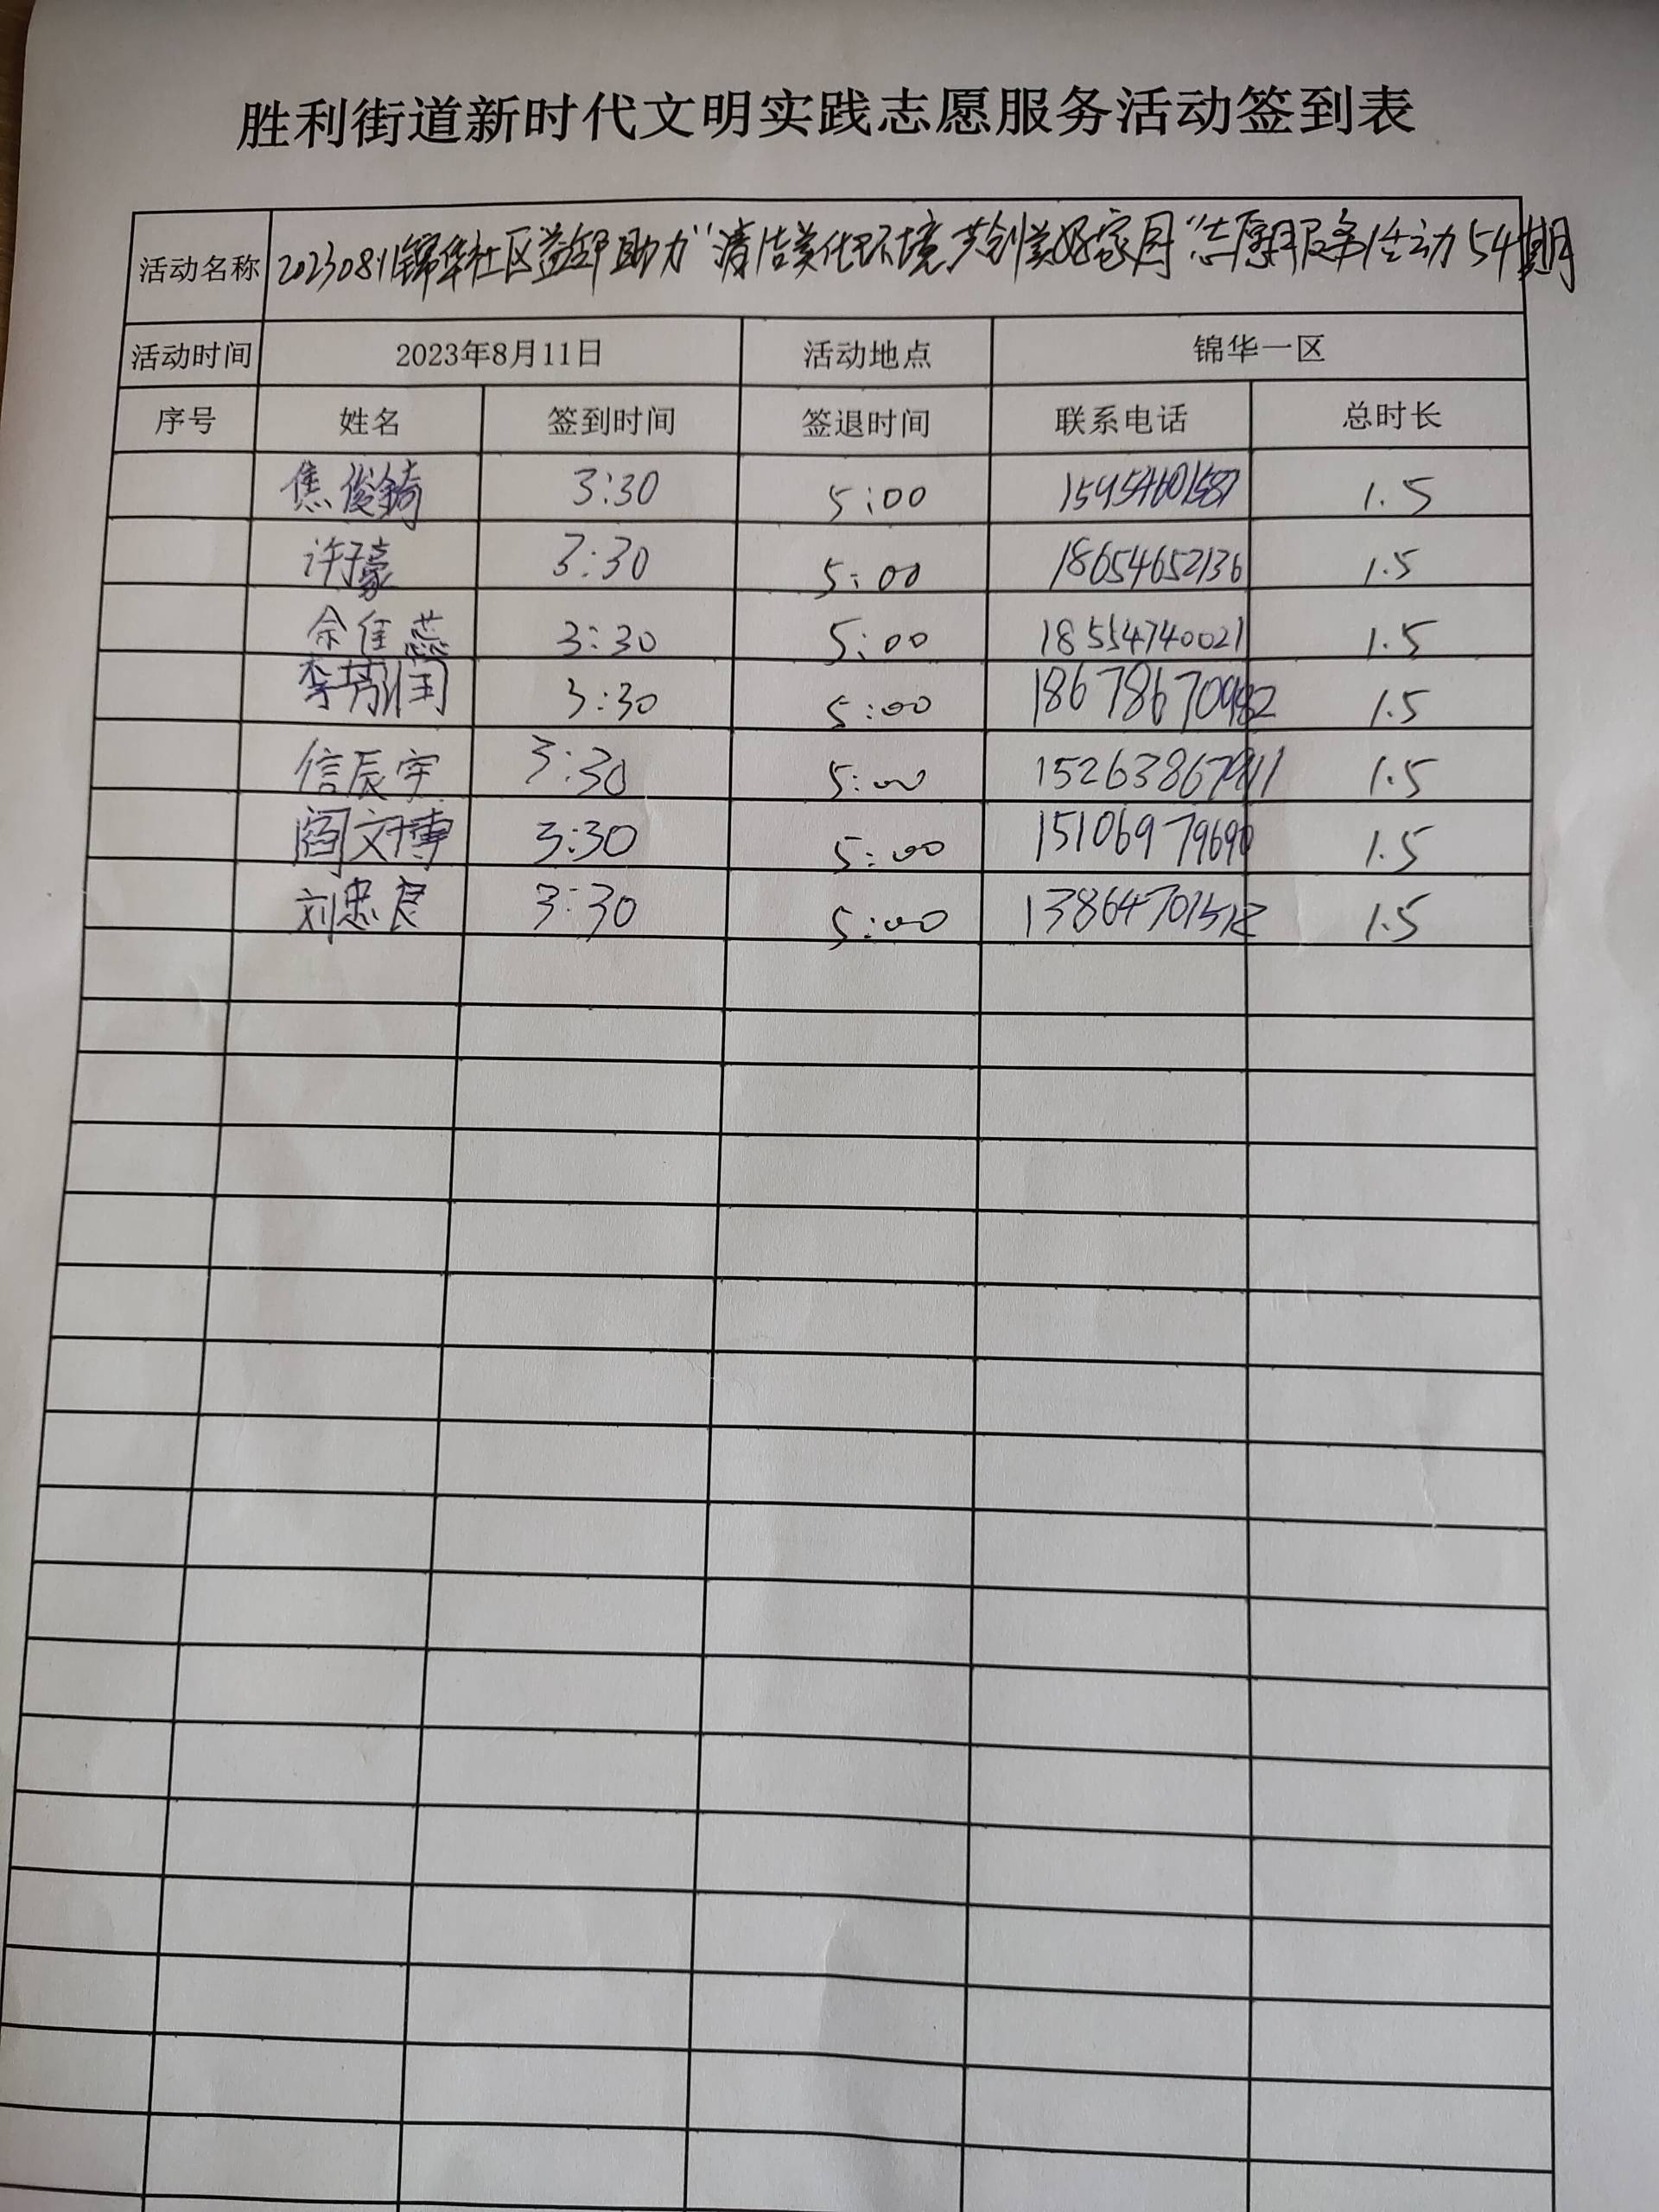 胜利街道新时代文明实践志愿服务活动签到表
活动名称 20230811锦华社区益邻助力“清洁美化环境 共创美好家园”志愿服务活动54期
活动时间 2023年8月11日 活动地点 锦华一区
序号 姓名 签到时间 签退时间 联系电话 总时长
焦俊錡 3:30 5:00 15954601587 1.5
许子豪 3:30 5:00 18654652136 1.5
佘佳蕊 3:30 5:00 18554740021 1.5
李 3:30 5:00 18678670982 1.5
信辰宇 3:30 5:00 15263867911 1.5
阎文博 3:30 5:00 15106979690 1.5
刘忠良 3:30 5:00 13864701512 1.5